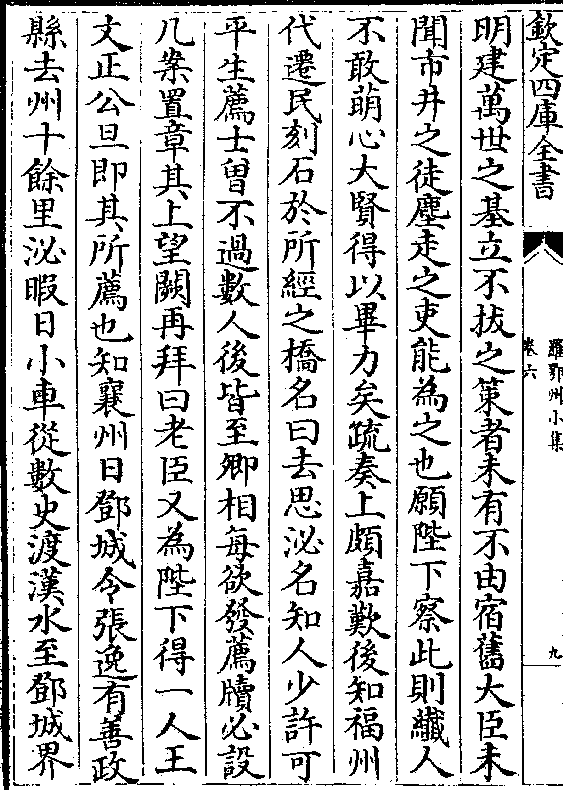 欽定四庫全書
羅鄂州小集
卷六
九
明建萬世之基立不拔之策者未有不由宿舊大臣未
聞市井之徒塵走之吏能為之也願陛下察此則纎人
不敢萌心大賢得以畢力矣疏奏上頗嘉歎後知福州
代還民刻石於所經之橋名曰去思泌名知人少許可
平生薦士曾不過數人後皆至卿相每欲發薦牘必設
几案置章其上望闕再拜曰老臣又為陛下得一人王
文正公旦即其所薦也知襄州日鄧城令張逸有善政
縣去州十餘里泌暇日小車從數吏渡漢水至鄧城界